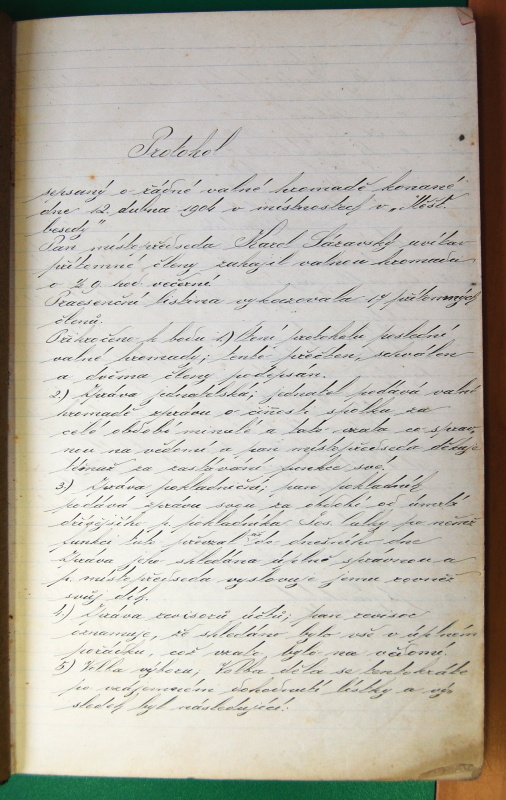 Protokol
sepsaný o řádné valné hromadě konané
dne 12. dubna 1906 v místnostech v „Měšť.
besedy"
Pan místopředseda Karel Sázavský uvítav
přítomné členy zahajil valnou hromadu
o ½ 9. hod. večerní.
Praesenční listina vykazovala 17 přítomných
členů.
Přikročeno k bodu 1) čtení protokolu poslední
valné hromady; tento přečten, schválen
a dvěma členy podepsán.
2.) Zpráva jednatelská; jednatel podává valné
hromadě zprávu o činnosti spolku za
celé období minulé a tato vzata co správ
nou na vědomí a pan místopředseda děkuje
témuž za zastávání funkce své.
3) Zpráva pokladniční; pan pokladník
podává zprávu svou za období od úmrtí
dřívějšího p. pokladníka Jos. po němž
funkci tuto přijal až do dnešního dne
Zpráva jeho shledána úplně správnou a
p. místopředseda vyslovuje jemu rovněž
svůj dík.
4.) Zpráva revisorů účtů; pan revisor
oznamuje, že shledáno bylo vše v úplném
pořádku, což vzato bylo na vědomí.
5) Volba výboru, Volba děla se tentokráte
po vzájemném dohodnutí lístky a výs
ledek byl následující: